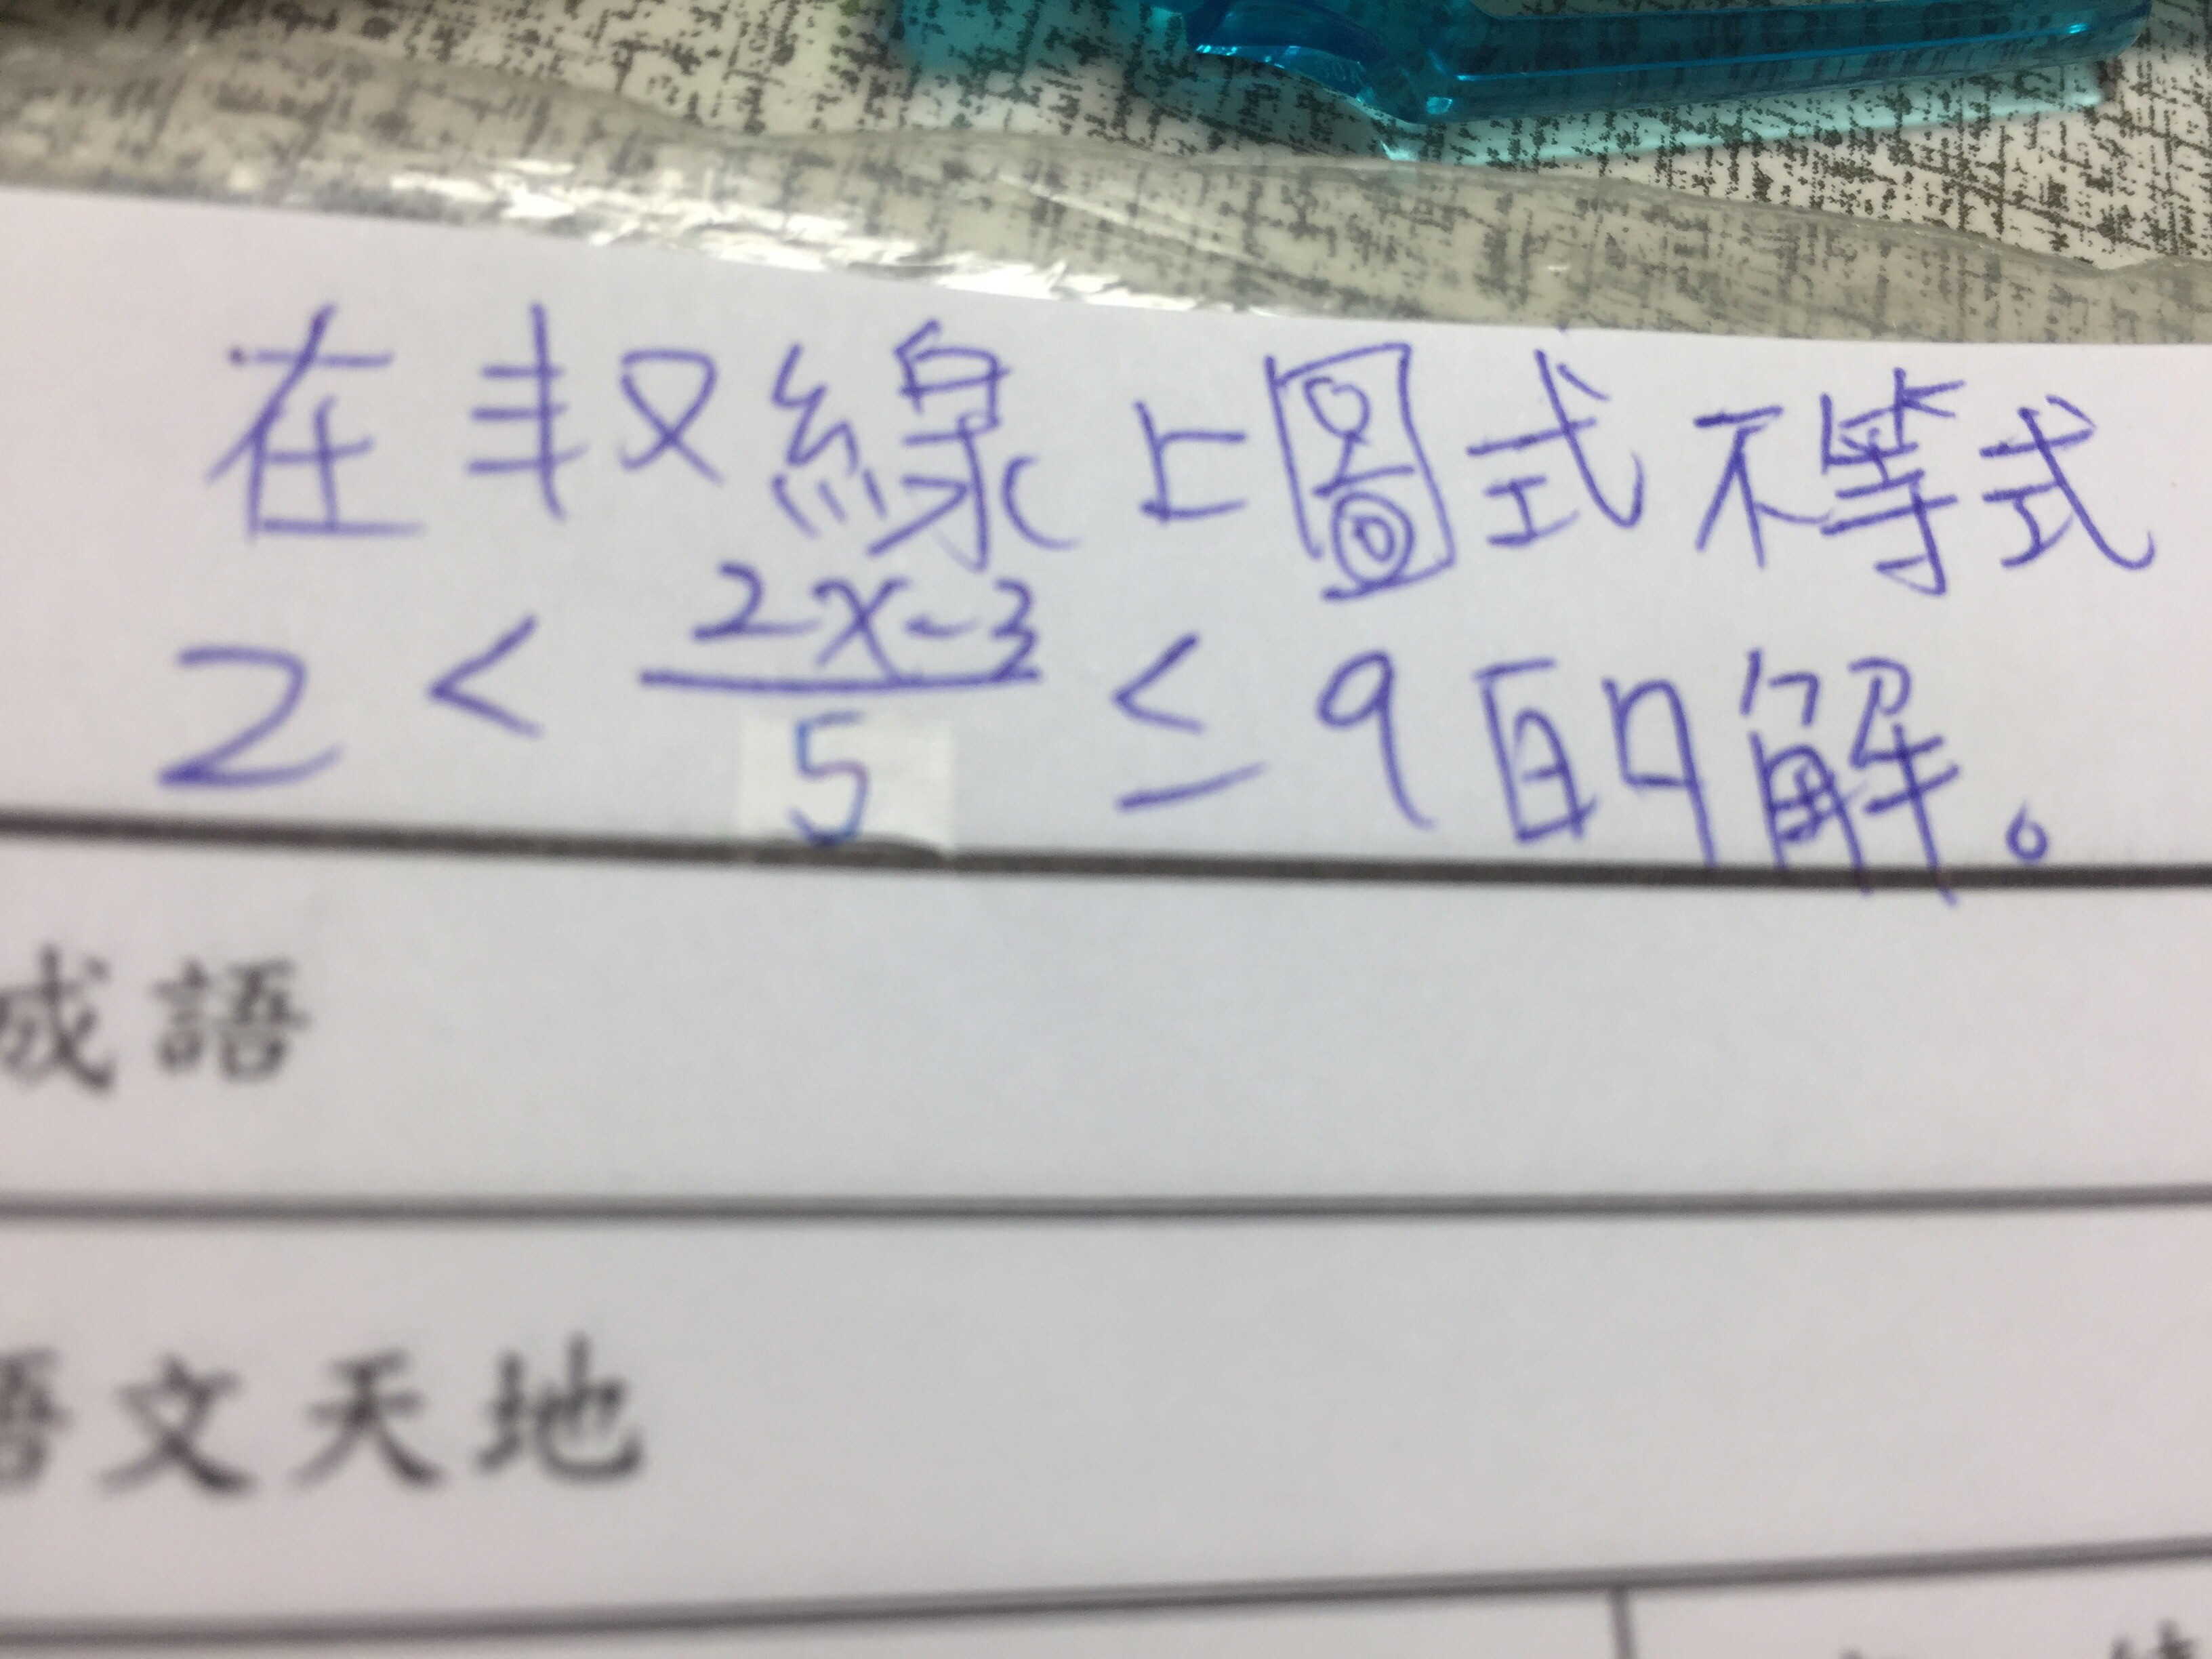 在數線上圖式不等式
2 < \frac{2x-3}{5} ≤ 9的解。
成語
語文天地